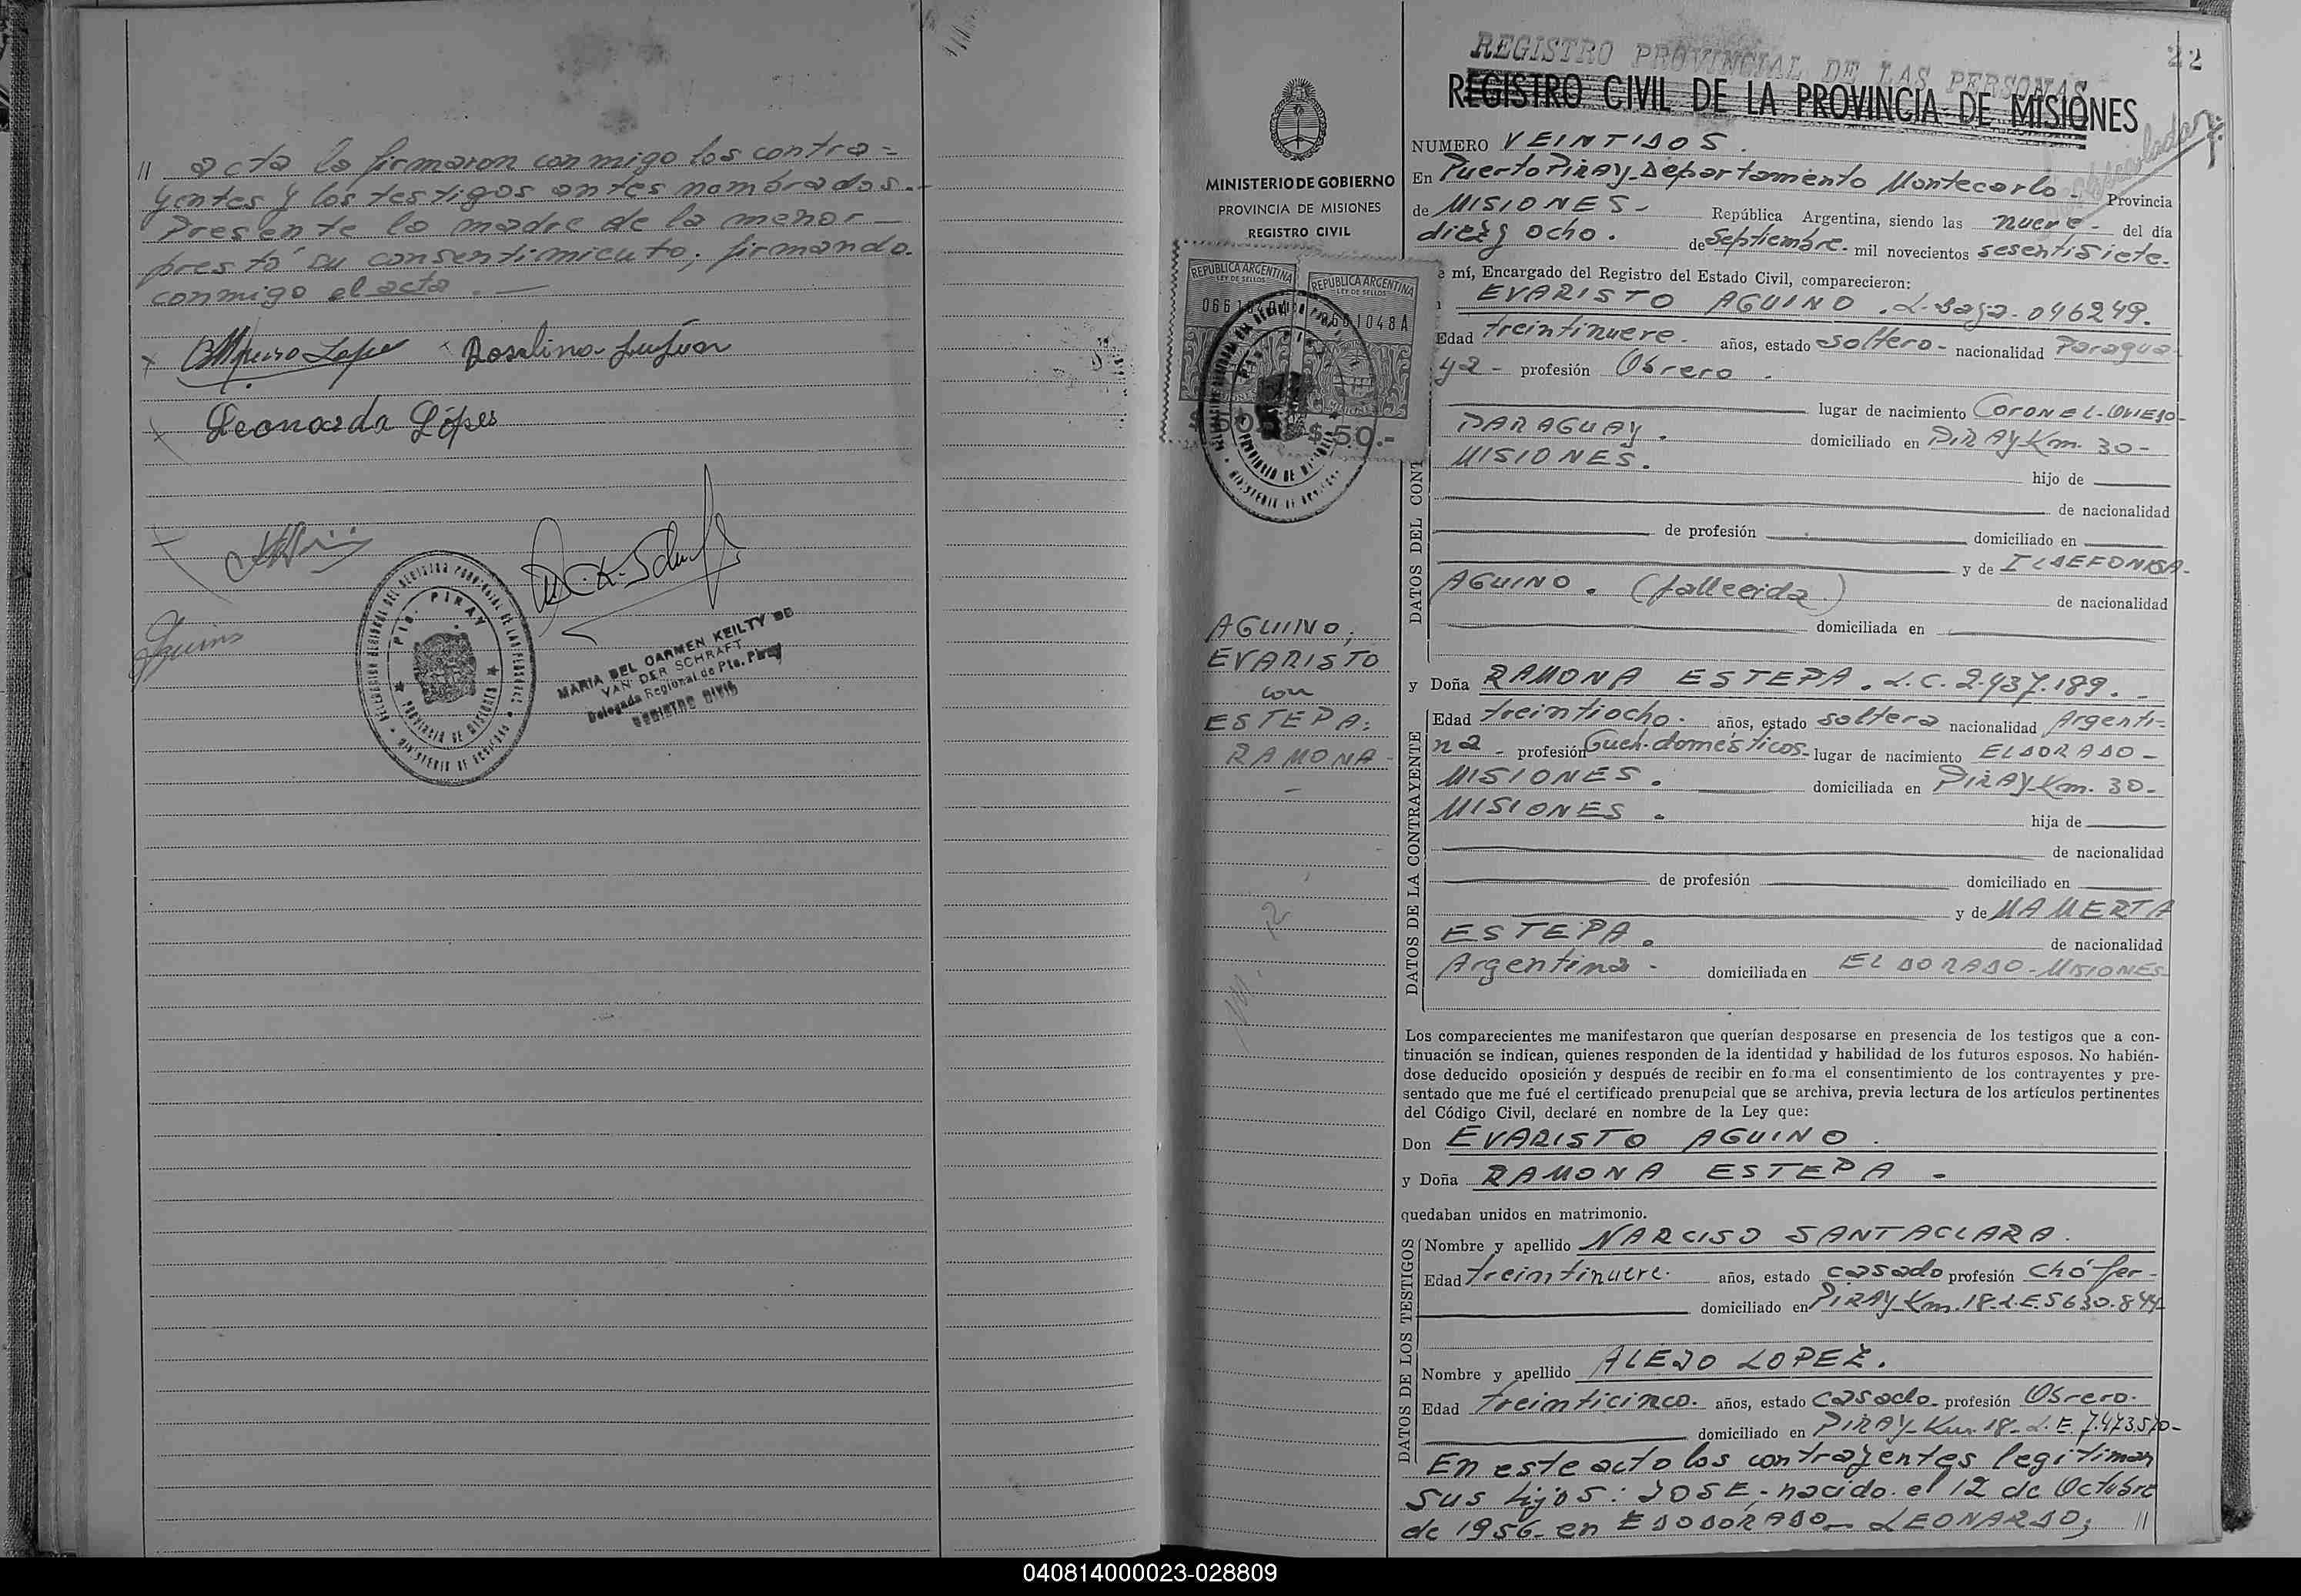 // acta la firmaron conmigo los contra=
yentes y los testigos antes nombrados.-
Presente la madre de la menor -
prestó su consentimiento, firmando
conmigo el acta. -
Rosalina
Leonarda Lópes
MARIA DEL CARMEN KEILTY DE
VAN DER SCHRAFT
Delegada Regional de Pto. Piray
REGISTRO CIVIL
PTO. PIRAY
PROVINCIA DE MISIONES
22
REGISTRO PROVINCIAL DE LAS PERSONAS
REGISTRO CIVIL DE LA PROVINCIA DE MISIONES
MINISTERIO DE GOBIERNO
PROVINCIA DE MISIONES
REGISTRO CIVIL
REPUBLICA ARGENTINA
LEY DE SELLOS
REPUBLICA ARGENTINA
LEY DE SELLOS
$ 50.-
AGUINO,
EVARISTO
con
ESTEPA:
RAMONA -
NUMERO VEINTIDOS.
En Puerto Piray-Departamento Montecarlo- Provincia
de MISIONES- República Argentina, siendo las nueve- del día
diez y ocho. de Septiembre- mil novecientos sesentisiete-
e mí, Encargado del Registro del Estado Civil, comparecieron:
EVARISTO AGUINO. 046249.
Edad treintinueve- años, estado soltero- nacionalidad Paragua-
ya - profesión Obrero.
lugar de nacimiento CORONEL-OVIEDO-
PARAGUAY. domiciliado en PIRAY Km. 30-
MISIONES. hijo de
de nacionalidad
de profesión domiciliado en
y de ILDEFONSA-
AGUINO. (fallecida) de nacionalidad
domiciliada en
DATOS DEL CONT
y Doña RAMONA ESTEPA. L.C. 2.437.189.-
DATOS DE LA CONTRAYENTE
Edad treintiocho. años, estado soltera nacionalidad Argenti=
na - profesión Queh. domésticos- lugar de nacimiento ELDORADO-
MISIONES. domiciliada en PIRAY-Km. 30-
MISIONES. hija de
de nacionalidad
de profesión domiciliado en
y de MAMERTA
ESTEPA. de nacionalidad
Argentina- domiciliada en ELDORADO-MISIONES
Los comparecientes me manifestaron que querían desposarse en presencia de los testigos que a con-
tinuación se indican, quienes responden de la identidad y habilidad de los futuros esposos. No habién-
dose deducido oposición y después de recibir en forma el consentimiento de los contrayentes y pre-
sentado que me fué el certificado prenupcial que se archiva, previa lectura de los artículos pertinentes
del Código Civil, declaré en nombre de la Ley que:
Don EVARISTO AGUINO.
y Doña RAMONA ESTEPA.
quedaban unidos en matrimonio.
DATOS DE LOS TESTIGOS
Nombre y apellido NARCISO SANTACLARA.
Edad treintinueve. años, estado casado profesión Chófer-
domiciliado en PIRAY Km. 18-L.E. 5630.844-
Nombre y apellido ALEJO LOPEZ.
Edad treinticinco. años, estado casado- profesión Obrero.
domiciliado en PIRAY-Km. 18-L.E. 7.473.570-
En este acto los contrayentes legitiman
sus hijos: JOSE, nacido el 12 de Octubre
de 1956- en ELDORADO- LEONARDO; //
040814000023-028809